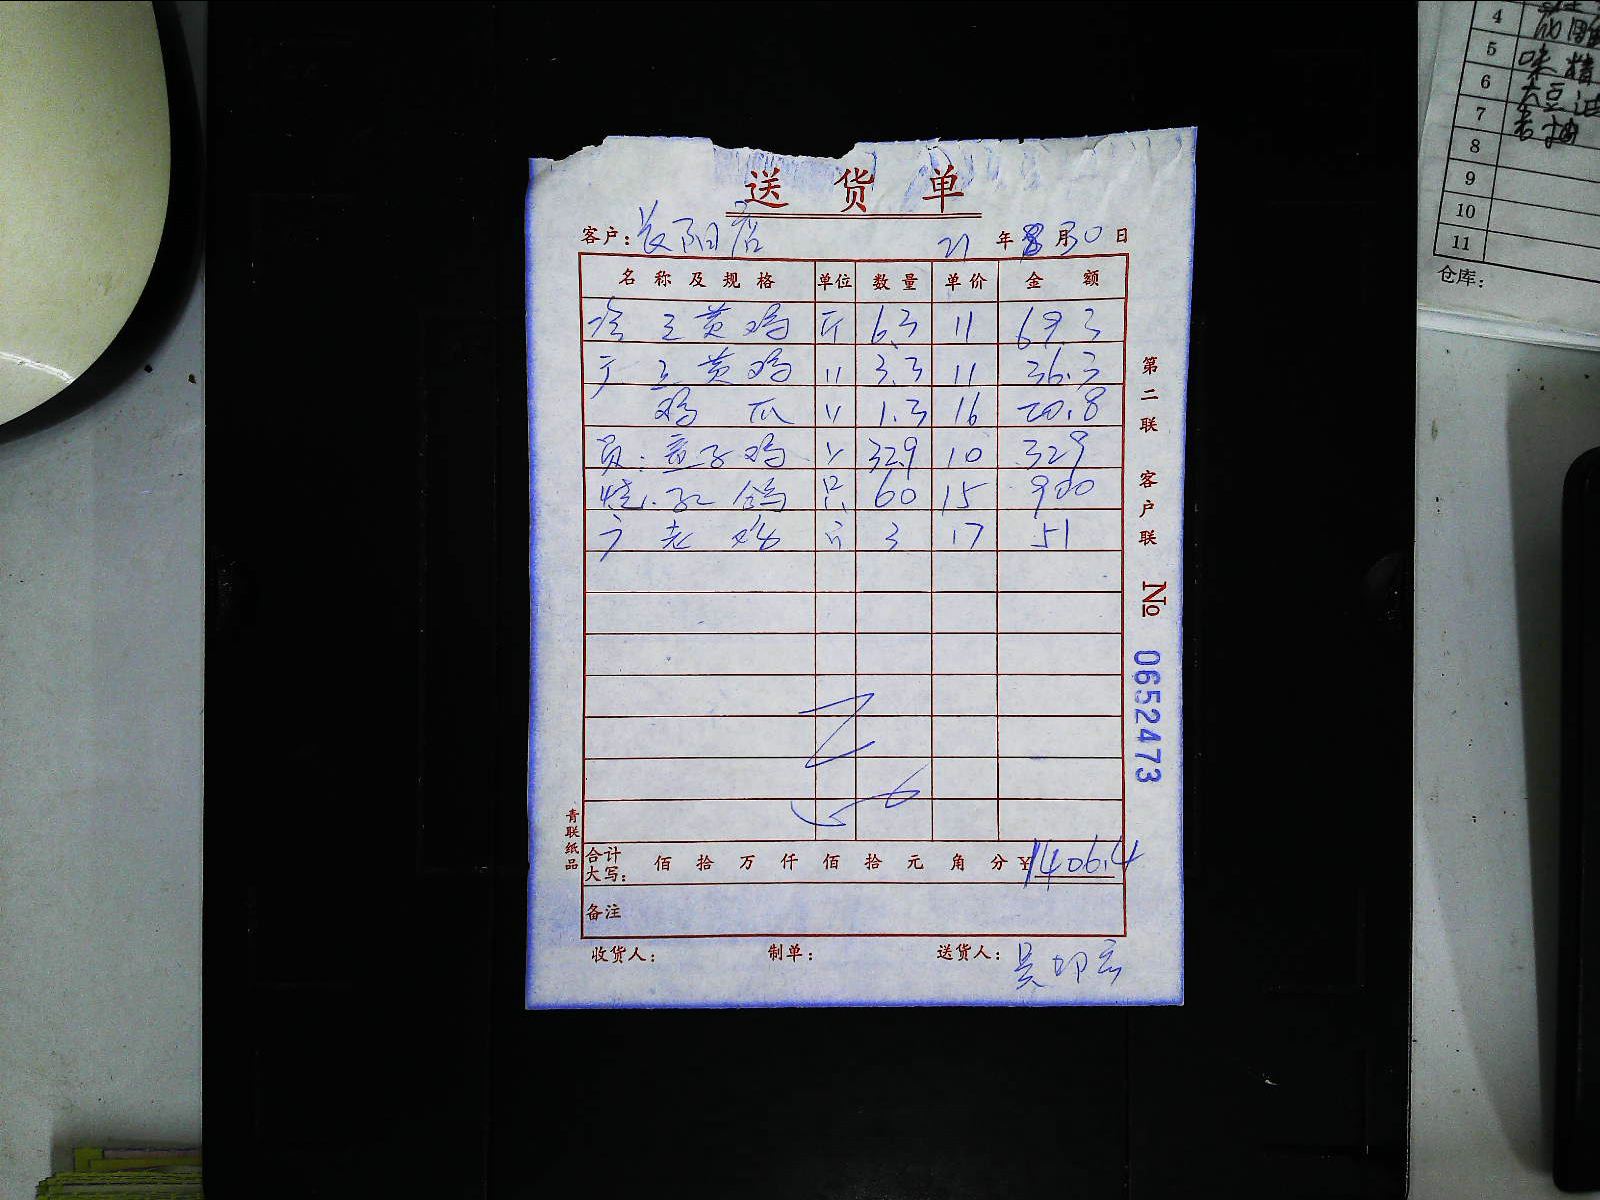 送货单
客户：长阳店 21年8月30日
名称及规格 单位 数量 单价 金额
冷 三黄鸡 斤 6.3 11 69.3
广 三黄鸡 〃 3.3 11 36.3
鸡爪 〃 1.3 16 20.8
员：童子鸡 〃 32.9 10 329
烧：乳鸽 只 60 15 900
广 老鸡 斤 3 17 51
合计大写： 佰 拾 万 仟 佰 拾 元 角 分 ¥1406.4
备注
收货人： 制单： 送货人：吴
第二联 客户联
№ 0652473
青联纸品
4
5 味精
6 大豆油
7 老抽
8
9
10
11
仓库：